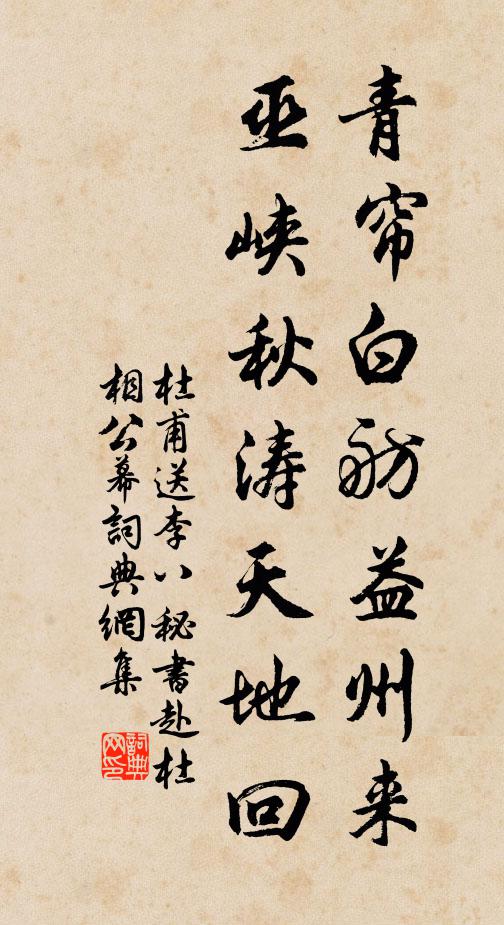 青帘白舫益州来
巫峡秋涛天地回
杜甫送李八秘書赴杜
相公幕詞典網集
詞典
网印